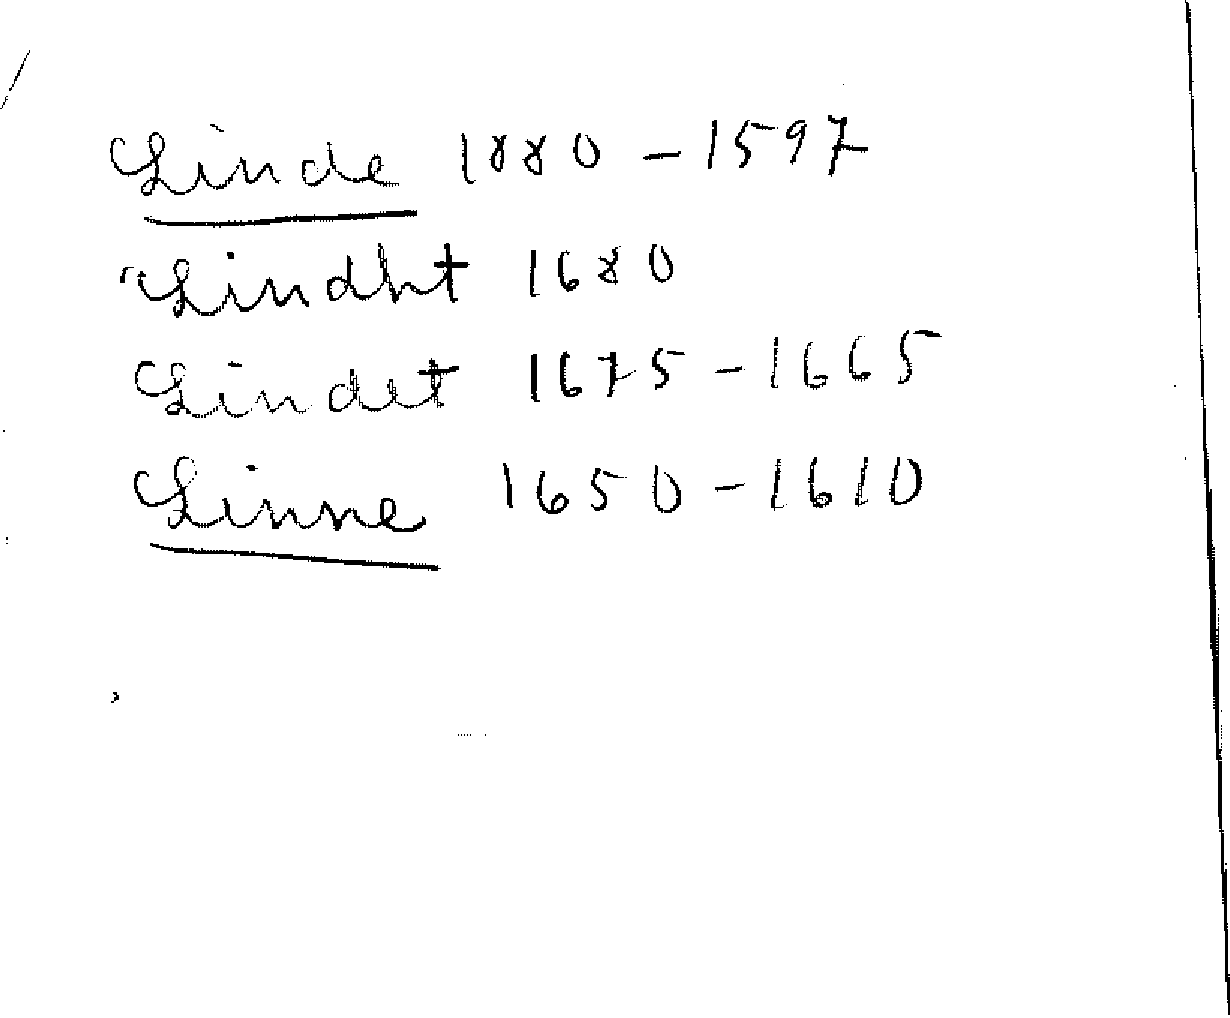 Linde 1880 - 1597
Lindht 1680
Lindet 1675 - 1665
Linne 1650 - 1610